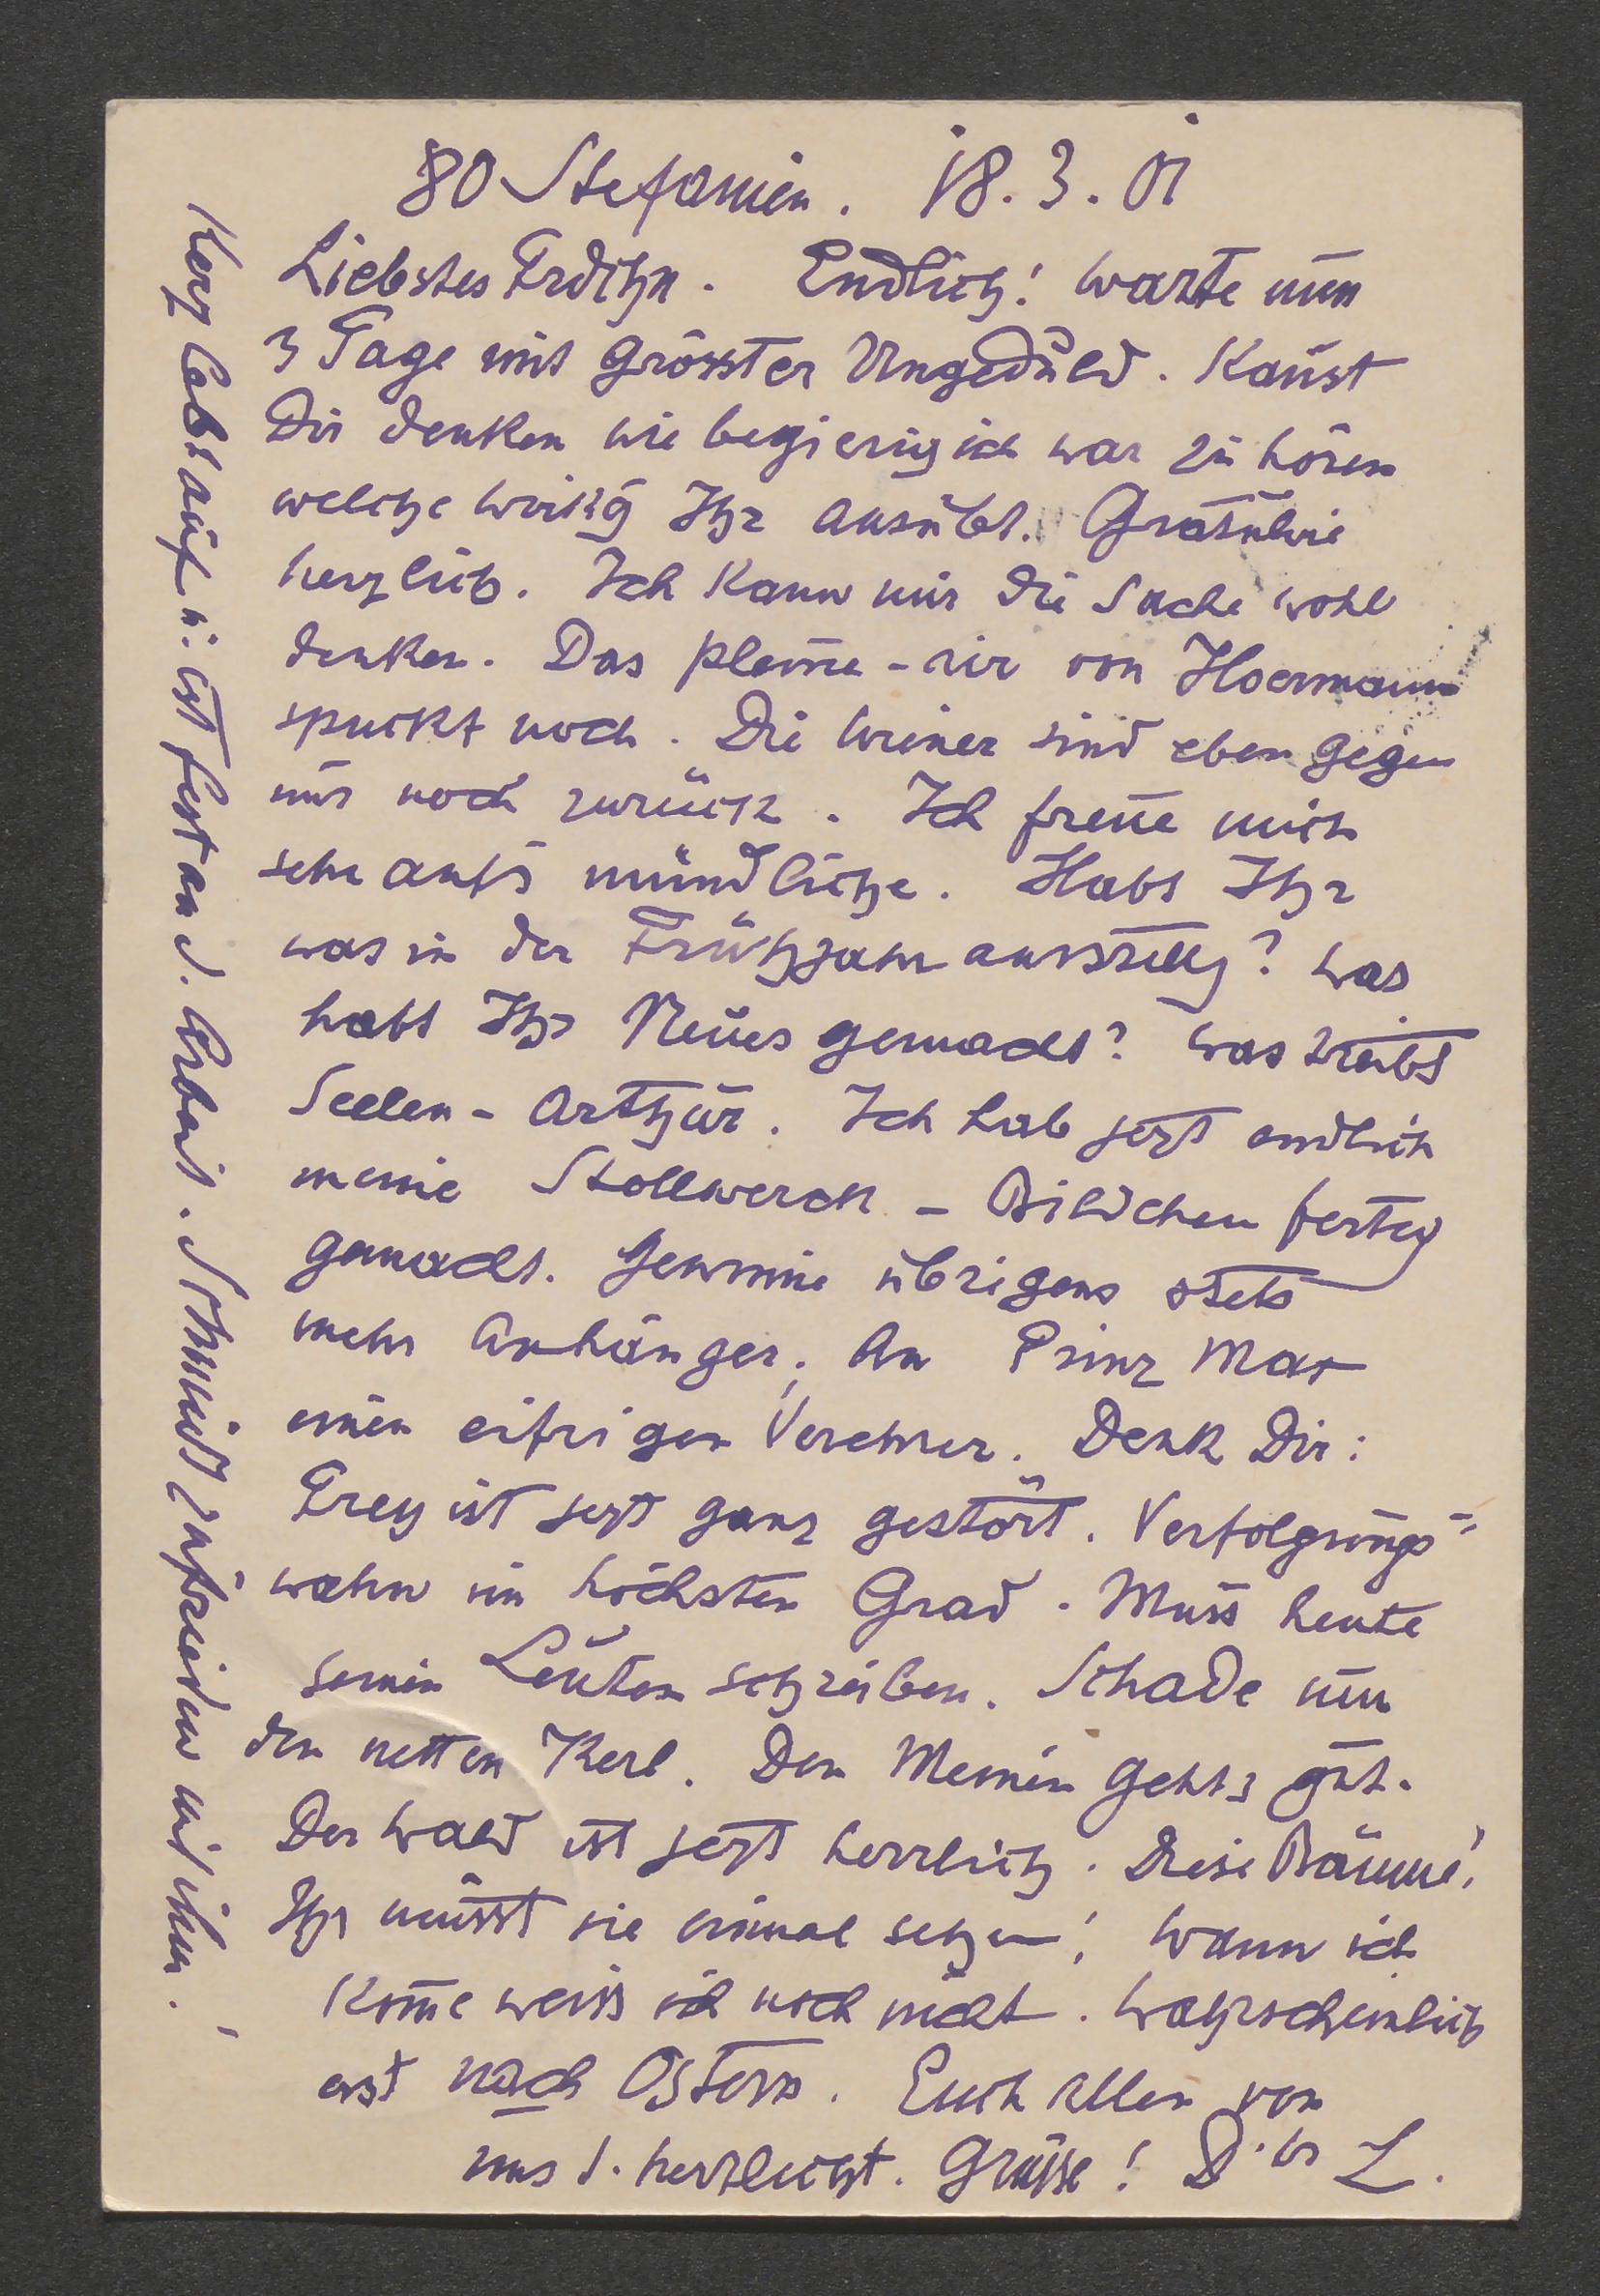 80 Stefanien. 18.3.01
Liebstes Frdchn. Endlich! Warte nun
3 Tage mit grösster Ungeduld. Kanst
Dir denken wie begierig ich war zu hören
welche Wirkg Ihr ausübt. Gratulire
herzlich. Ich kann mir die Sache wohl
denken. Das von Hoermann
spuckt noch. Die Wiener sind eben gegen
uns noch zurück. Ich freue mich
sehr auf's mündliche. Habt Ihr
was in der Frühjahrausstellg? Was
habt Ihr Neues gemacht? Was treibt
Seelen-Arthur. Ich hab jezt endlich
meine Stollwerck-Bildchen fertig
gemacht. Gewinne übrigens stets
mehr Anhänger; An Prinz Max
einen eifrigen Verehrer. Denk Dir:
Frey ist jezt ganz gestört. Verfolgungs-
wahn im höchsten Grad. Muss heute
seinen Leuten schreiben. Schade um
den netten Kerl. Den Meinen gehts gut.
Der Wald ist jezt herrlich. Diese Bäume!
Ihr müsst sie einmal sehen! Wann ich
kome weiss ich noch nicht. Wahrscheinlich
erst nach Ostern. Euch allen von
uns d. herzlichst. Grüsse! D. L.
Kerz lebt auf u. ist fest an d. Arbeit. Schmidt zufrieden mit ihm.